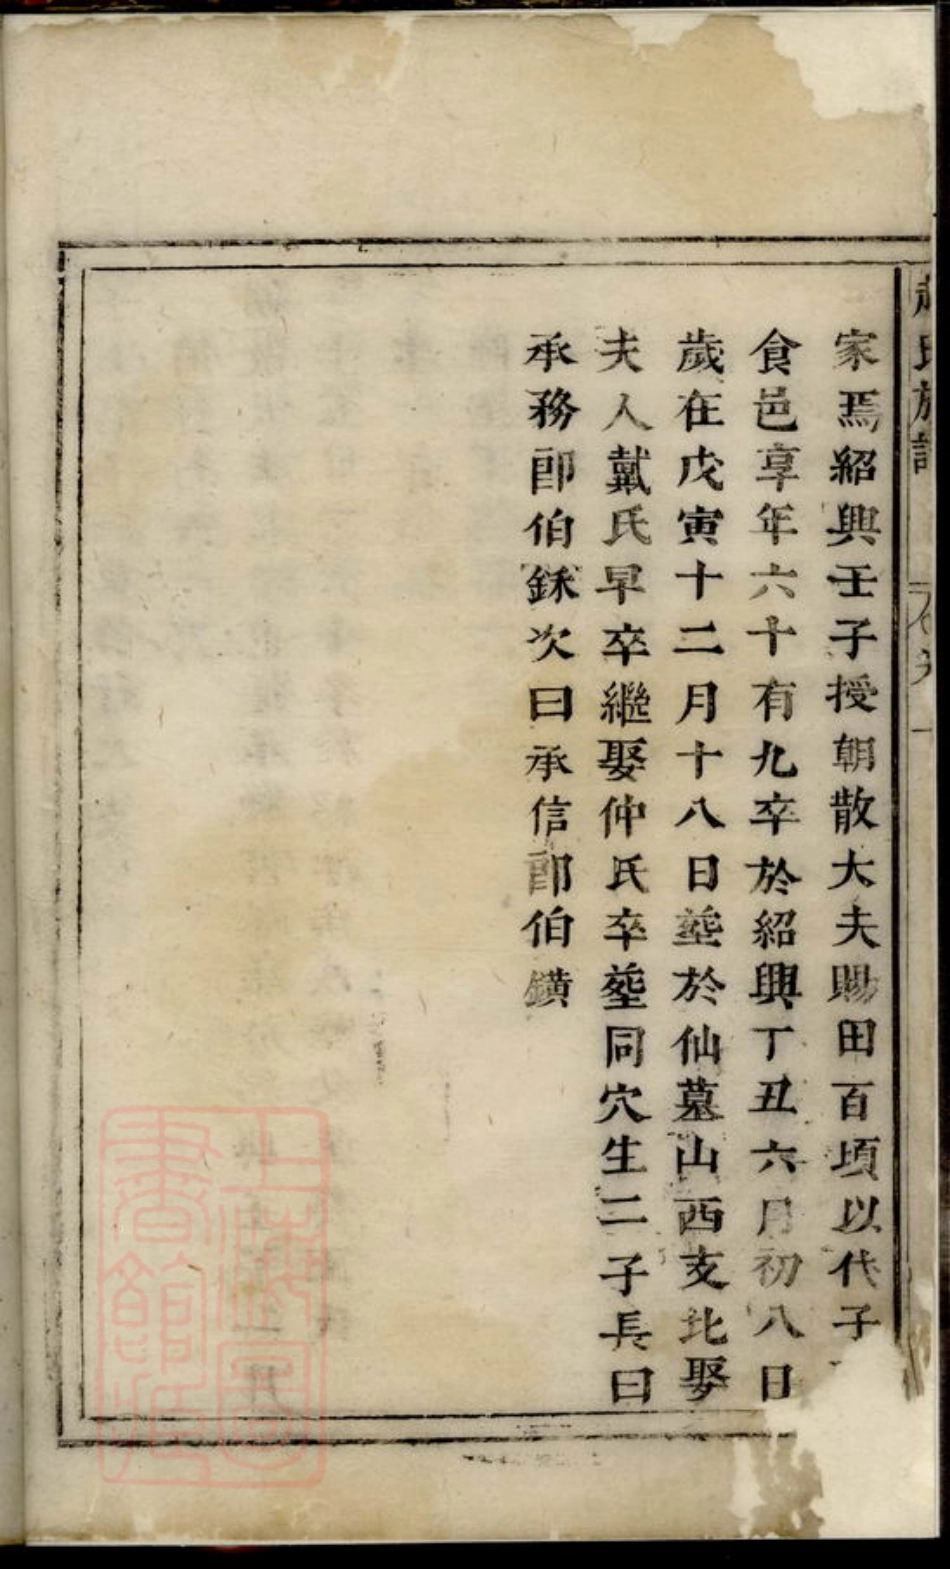 氏族譜
卷
一
家焉紹興壬子授朝散大夫賜田百頃以代子
食邑享年六十有九卒於紹興丁丑六月初八日
歲在戊寅十二月十八日塟於仙墓山西支北娶
夫人戴氏早卒繼娶仲氏卒塟同穴生二子長曰
承務郎伯銾次曰承信郎伯鐄
上海圖書館藏